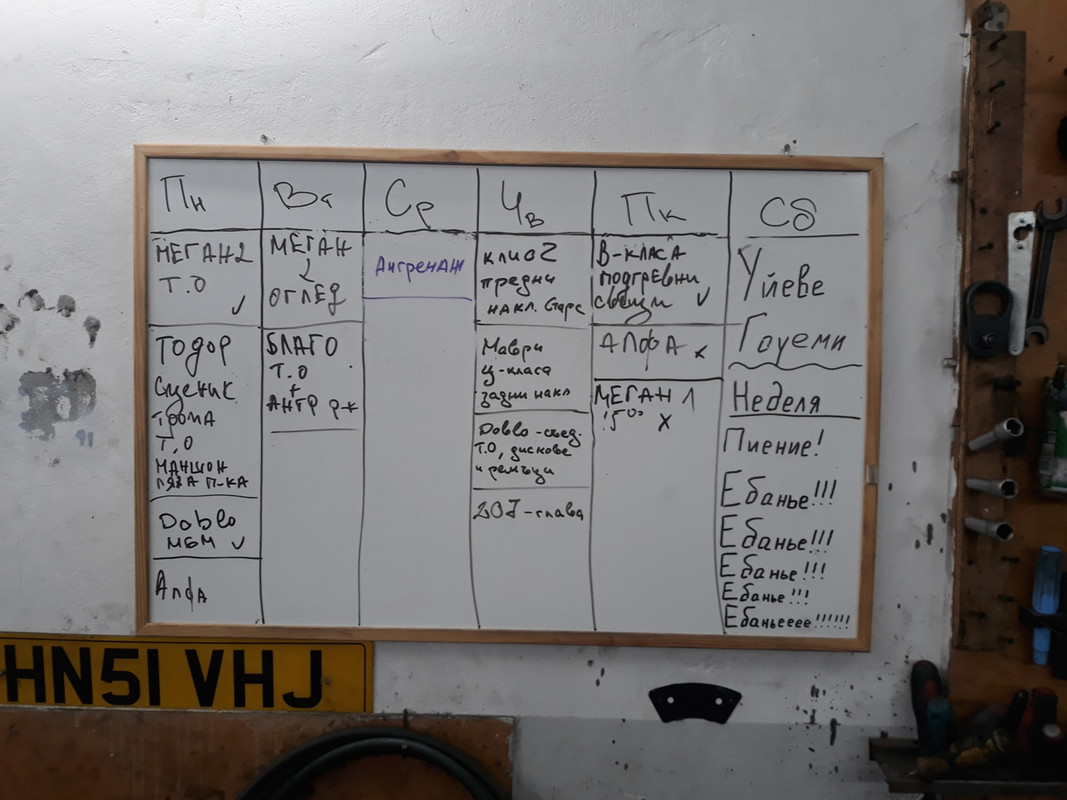 Пн
МЕГАН 2
Т.О
✓
ТОДОР
Сценик
Т.О
МАНШОН
ЛЯВА П-КА
Doblo
МБМ ✓
Алфа
Вт
МЕГАН
2
ОГЛЕД
БЛАГО
Т.О
+
АНГР
Ср
Ангренаж
Чв
клио 2
предни
накл. Старс
Маври
ц-класа
задни накл
Doblo-съед.
Т.О, дискове
и ремъци
207-глава
Пк
В-КЛАСА
ПОДГРЕВНИ
свещи ✓
АЛФА x
МЕГАН 1
1500 X
Сб
Уйеве
Гоуеми
Неделя
Пиение!
Ебанье!!!
Ебанье!!!
Ебанье!!!
Ебанье!!!
Ебаньееее!!!!!!
HN51 VHJ